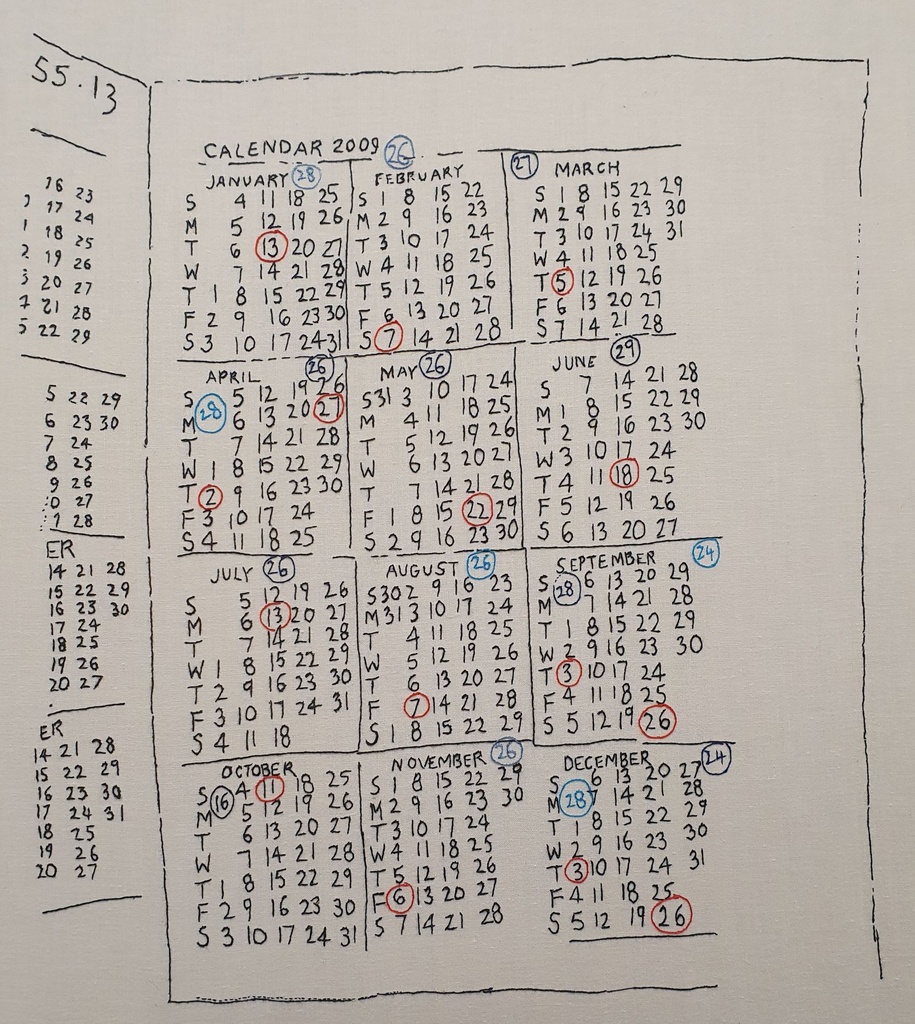 55.13
16 23
17 24
18 25
19 26
20 27
21 28
22 29
5 22 29
6 23 30
7 24
8 25
9 26
27
28
ER
14 21 28
15 22 29
16 23 30
17 24
18 25
19 26
20 27
ER
14 21 28
15 22 29
16 23 30
17 24 31
18 25
19 26
20 27
CALENDAR 2009 26
JANUARY 28
S 4 11 18 25
M 5 12 19 26
T 6 13 20 27
W 7 14 21 28
T 1 8 15 22 29
F 2 9 16 23 30
S 3 10 17 24 31
FEBRUARY
S 1 8 15 22
M 2 9 16 23
T 3 10 17 24
W 4 11 18 25
T 5 12 19 26
F 6 13 20 27
S 7 14 21 28
27 MARCH
S 1 8 15 22 29
M 2 9 16 23 30
T 3 10 17 24 31
W 4 11 18 25
T 5 12 19 26
F 6 13 20 27
S 7 14 21 28
APRIL 26
S 5 12 19 26
M 28 6 13 20 27
T 7 14 21 28
W 1 8 15 22 29
T 2 9 16 23 30
F 3 10 17 24
S 4 11 18 25
MAY 26
S 31 3 10 17 24
M 4 11 18 25
T 5 12 19 26
W 6 13 20 27
T 7 14 21 28
F 1 8 15 22 29
S 2 9 16 23 30
JUNE 29
S 7 14 21 28
M 1 8 15 22 29
T 2 9 16 23 30
W 3 10 17 24
T 4 11 18 25
F 5 12 19 26
S 6 13 20 27
JULY 26
S 5 12 19 26
M 6 13 20 27
T 7 14 21 28
W 1 8 15 22 29
T 2 9 16 23 30
F 3 10 17 24 31
S 4 11 18
AUGUST 26
S 30 2 9 16 23
M 31 3 10 17 24
T 4 11 18 25
W 5 12 19 26
T 6 13 20 27
F 7 14 21 28
S 1 8 15 22 29
SEPTEMBER 24
S 28 6 13 20 29
M 7 14 21 28
T 1 8 15 22 29
W 2 9 16 23 30
T 3 10 17 24
F 4 11 18 25
S 5 12 19 26
OCTOBER
S 4 11 18 25
M 16 5 12 19 26
T 6 13 20 27
W 7 14 21 28
T 1 8 15 22 29
F 2 9 16 23 30
S 3 10 17 24 31
NOVEMBER 26
S 1 8 15 22 29
M 2 9 16 23 30
T 3 10 17 24
W 4 11 18 25
T 5 12 19 26
F 6 13 20 27
S 7 14 21 28
DECEMBER 24
S 6 13 20 27
M 28 7 14 21 28
T 1 8 15 22 29
W 2 9 16 23 30
T 3 10 17 24 31
F 4 11 18 25
S 5 12 19 26